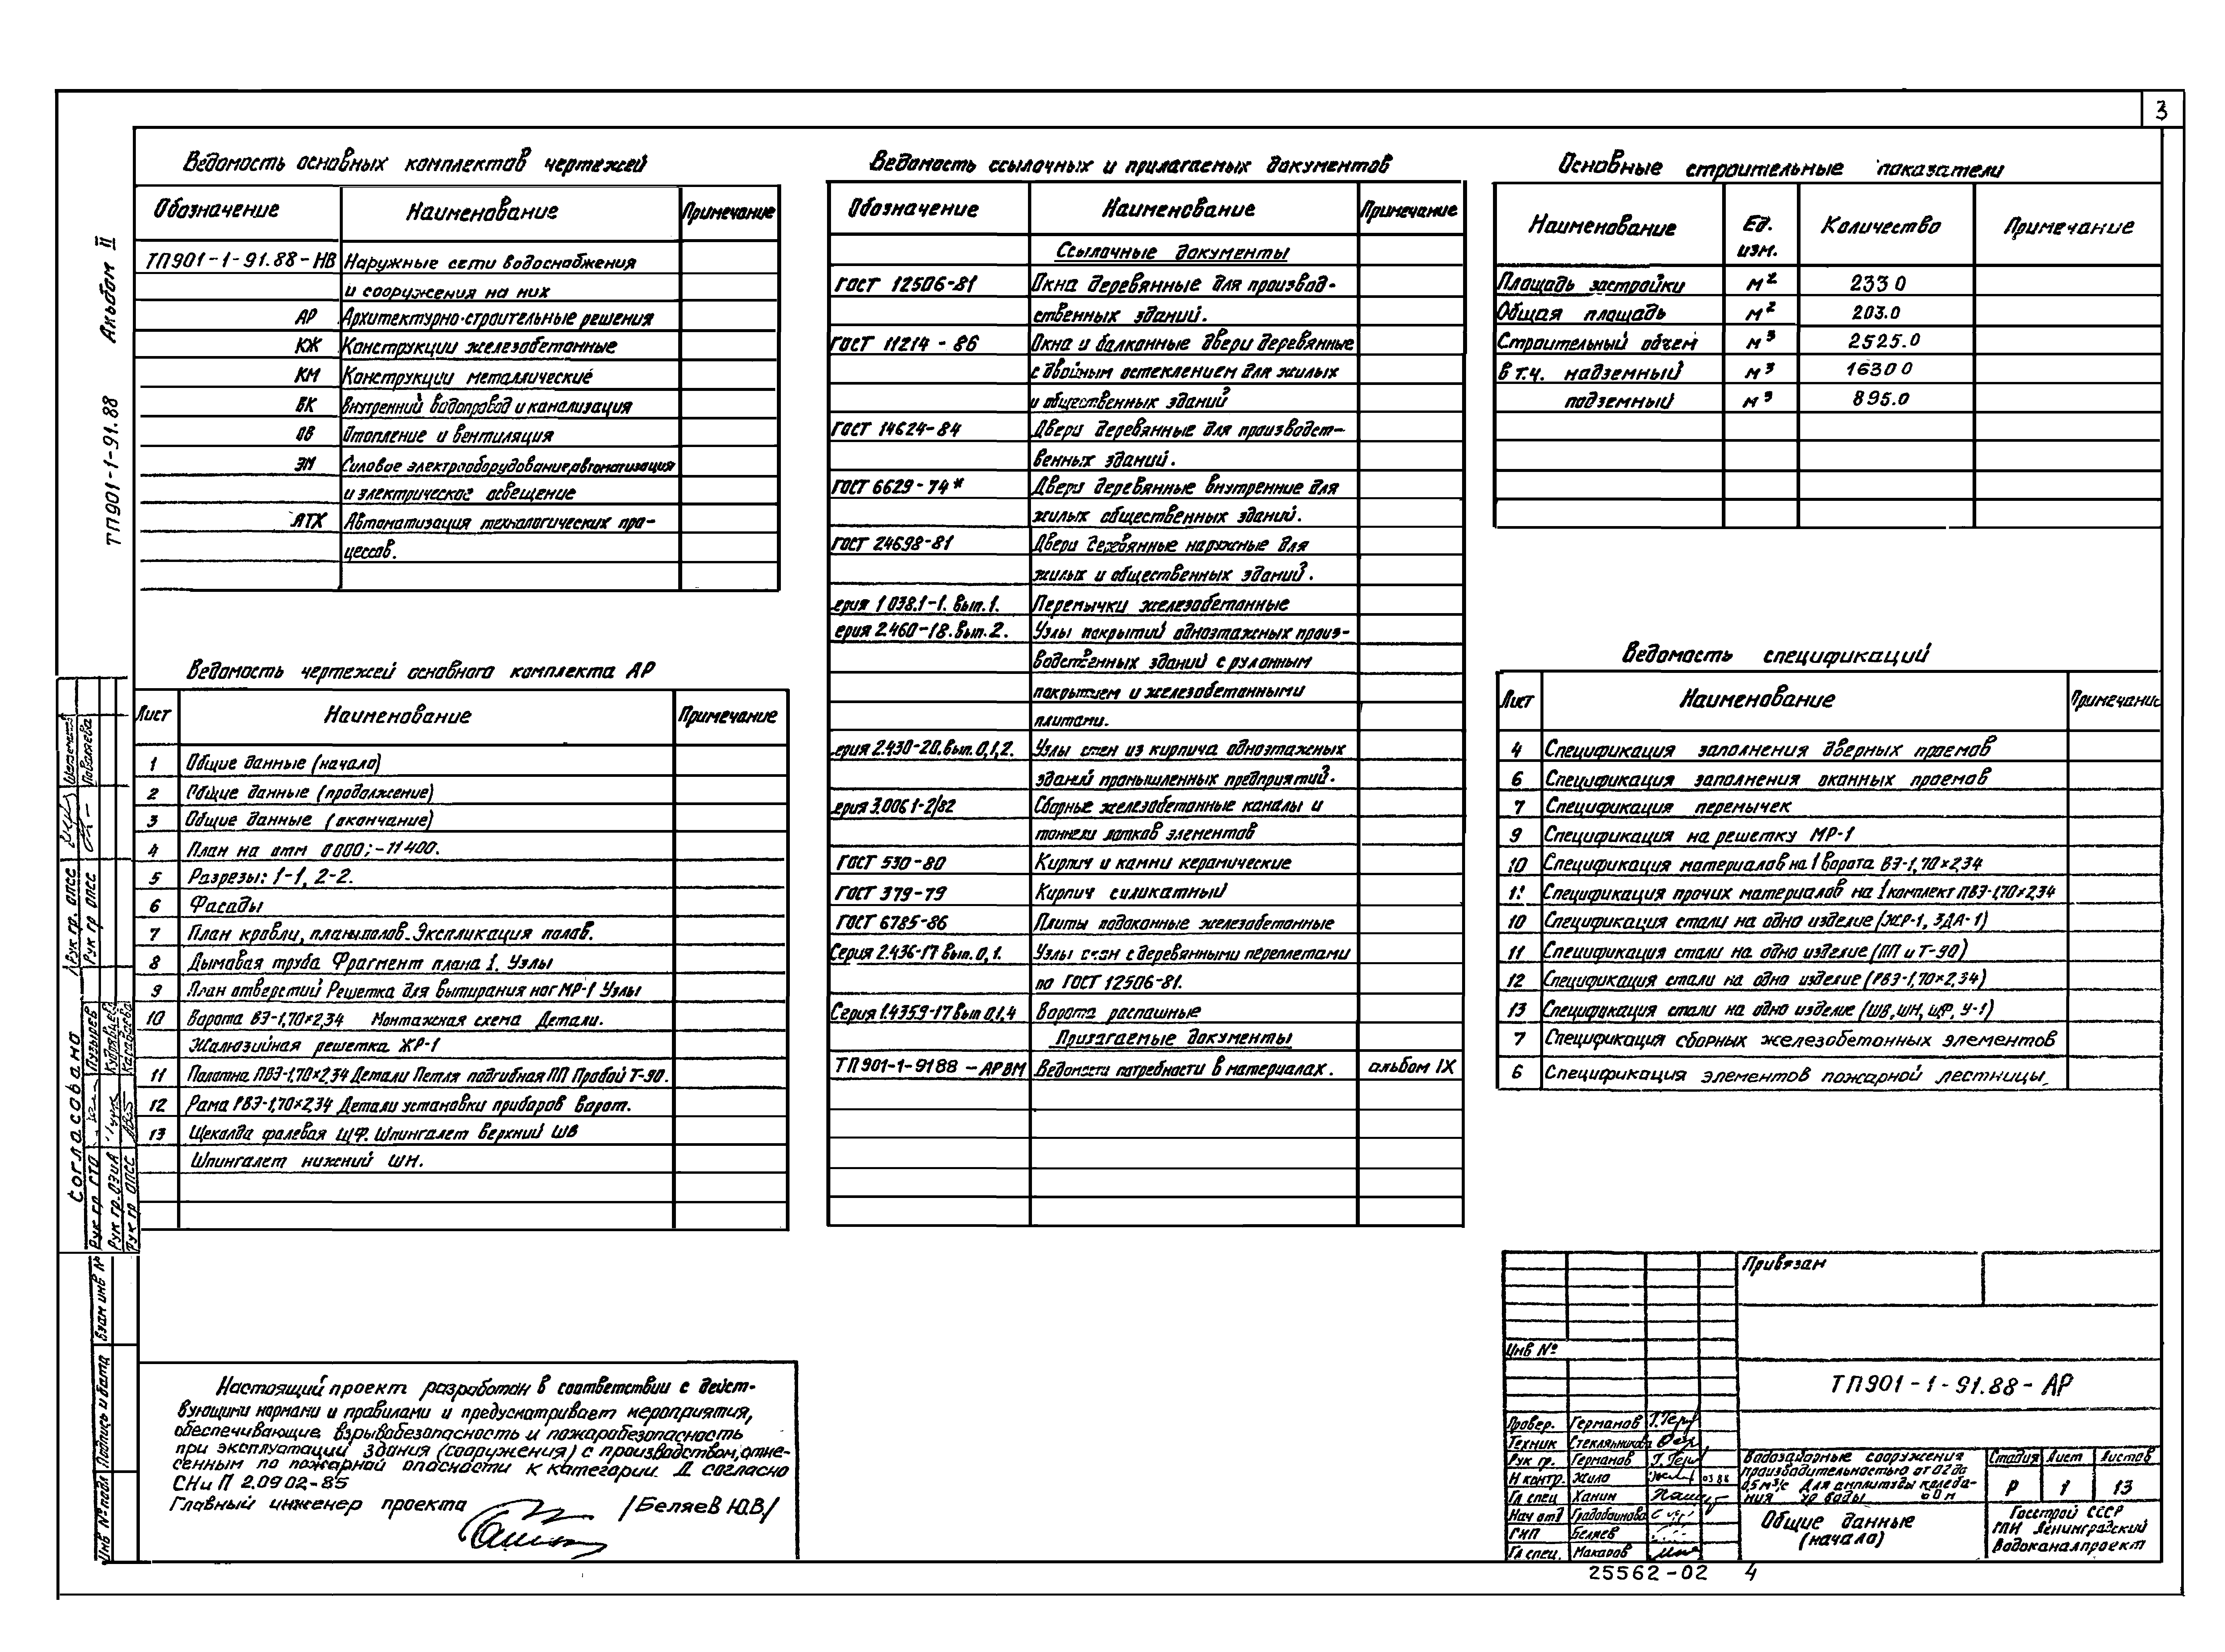 3
Альбом II
ТП901-1-91.88
Ведомость основных комплектов чертежей
Обозначение Наименование Примечание
ТП901-1-91.88-НВ Наружные сети водоснабжения
и сооружения на них
АР Архитектурно-строительные решения
КЖ Конструкции железобетонные
КМ Конструкции металлические
ВК Внутренний водопровод и канализация
ОВ Отопление и вентиляция
ЭМ Силовое электрооборудование, автоматизация
и электрическое освещение
АТХ Автоматизация технологических про-
цессов.
Ведомость чертежей основного комплекта АР
Лист Наименование Примечание
1 Общие данные (начало)
2 Общие данные (продолжение)
3 Общие данные (окончание)
4 План на отм 0 000; -11 400.
5 Разрезы: 1-1, 2-2.
6 Фасады
7 План кровли, планы полов. Экспликация полов.
8 Дымовая труба Фрагмент плана 1. Узлы
9 План отверстий Решетка для вытирания ног МР-1 Узлы
10 Ворота ВЭ-1,70×2,34 Монтажная схема Детали.
Жалюзийная решетка ЖР-1
11 Полотна ПВЭ-1,70×2,34 Детали Петля подгибная ПП Пробой Т-90.
12 Рама РВЭ-1,70×2,34 Детали установки приборов ворот.
13 Щеколда фалевая ЩФ. Шпингалет верхний ШВ
Шпингалет нижний ШН.
Настоящий проект разработан в соответствии с дейст-
вующими нормами и правилами и предусматривает мероприятия,
обеспечивающие взрывобезопасность и пожаробезопасность
при эксплуатации здания (сооружения) с производством, отне-
сенным по пожарной опасности к категории Д согласно
СНиП 2.09 02-85
Главный инженер проекта /Беляев Ю.В/
Ведомость ссылочных и прилагаемых документов
Обозначение Наименование Примечание
Ссылочные документы
ГОСТ 12506-81 Окна деревянные для производ-
ственных зданий.
ГОСТ 11214-86 Окна и балконные двери деревянные
с двойным остеклением для жилых
и общественных зданий
ГОСТ 14624-84 Двери деревянные для производст-
венных зданий.
ГОСТ 6629-74* Двери деревянные внутренние для
жилых общественных зданий.
ГОСТ 24698-81 Двери деревянные наружные для
жилых и общественных зданий.
ерия 1 038.1-1. вып.1. Перемычки железобетонные
ерия 2.460-18. вып.2. Узлы покрытий одноэтажных произ-
водственных зданий с рулонным
покрытием и железобетонными
плитами.
ерия 2.430-20. вып. 0,1,2. Узлы стен из кирпича одноэтажных
зданий промышленных предприятий.
ерия 3.006 1-2/82 Сборные железобетонные каналы и
тоннели лотков элементов
ГОСТ 530-80 Кирпич и камни керамические
ГОСТ 379-79 Кирпич силикатный
ГОСТ 6785-86 Плиты подоконные железобетонные
Серия 2.436-17 вып. 0,1. Узлы окон с деревянными переплетами
по ГОСТ 12506-81.
Серия 1.435.9-17 вып 0,1,4 Ворота распашные
Прилагаемые документы
ТП901-1-91 88 -АРВМ Ведомости потребности в материалах. альбом IX
Основные строительные показатели
Наименование Ед. изм. Количество Примечание
Площадь застройки м² 233 0
Общая площадь м² 203.0
Строительный объем м³ 2525.0
в т.ч. надземный м³ 1630 0
подземный м³ 895.0
Ведомость спецификаций
Лист Наименование Примечание
4 Спецификация заполнения дверных проемов
6 Спецификация заполнения оконных проемов
7 Спецификация перемычек
9 Спецификация на решетку МР-1
10 Спецификация материалов на 1 ворота ВЭ-1,70×2,34
11 Спецификация прочих материалов на 1 комплект ПВЭ-1,70×2,34
10 Спецификация стали на одно изделие (ЖР-1, ЗДА-1)
11 Спецификация стали на одно изделие (ПП и Т-90)
12 Спецификация стали на одно изделие (РВЭ-1,70×2,34)
13 Спецификация стали на одно изделие (ШВ, ШН, ЩФ, У-1)
7 Спецификация сборных железобетонных элементов
6 Спецификация элементов пожарной лестницы
Привязан
Инв №
ТП901-1-91.88-АР
Провер. Германов
Техник Стеклянникова
Рук гр. Германов
Н контр. Жило 03 88
Гл спец Ханин
Нач отд
ГИП Беляев
Гл спец. Макаров
Водозаборные сооружения
производительностью от 0 2 до
0,5 м³/с Для амплитуды колеба-
ния ур воды 6 0 м
Стадия Лист Листов
Р 1 13
Общие данные
(начало)
Госстрой СССР
ГПИ Ленинградский
Водоканалпроект
25562-02 4
Согласовано
Рук гр. СТО Пузырев
Рук гр. ОЭиА
Рук гр ОПСС
Рук гр. ОПСС
Рук гр ОПСС
Взам инв №
Подпись и дата
Инв № подл